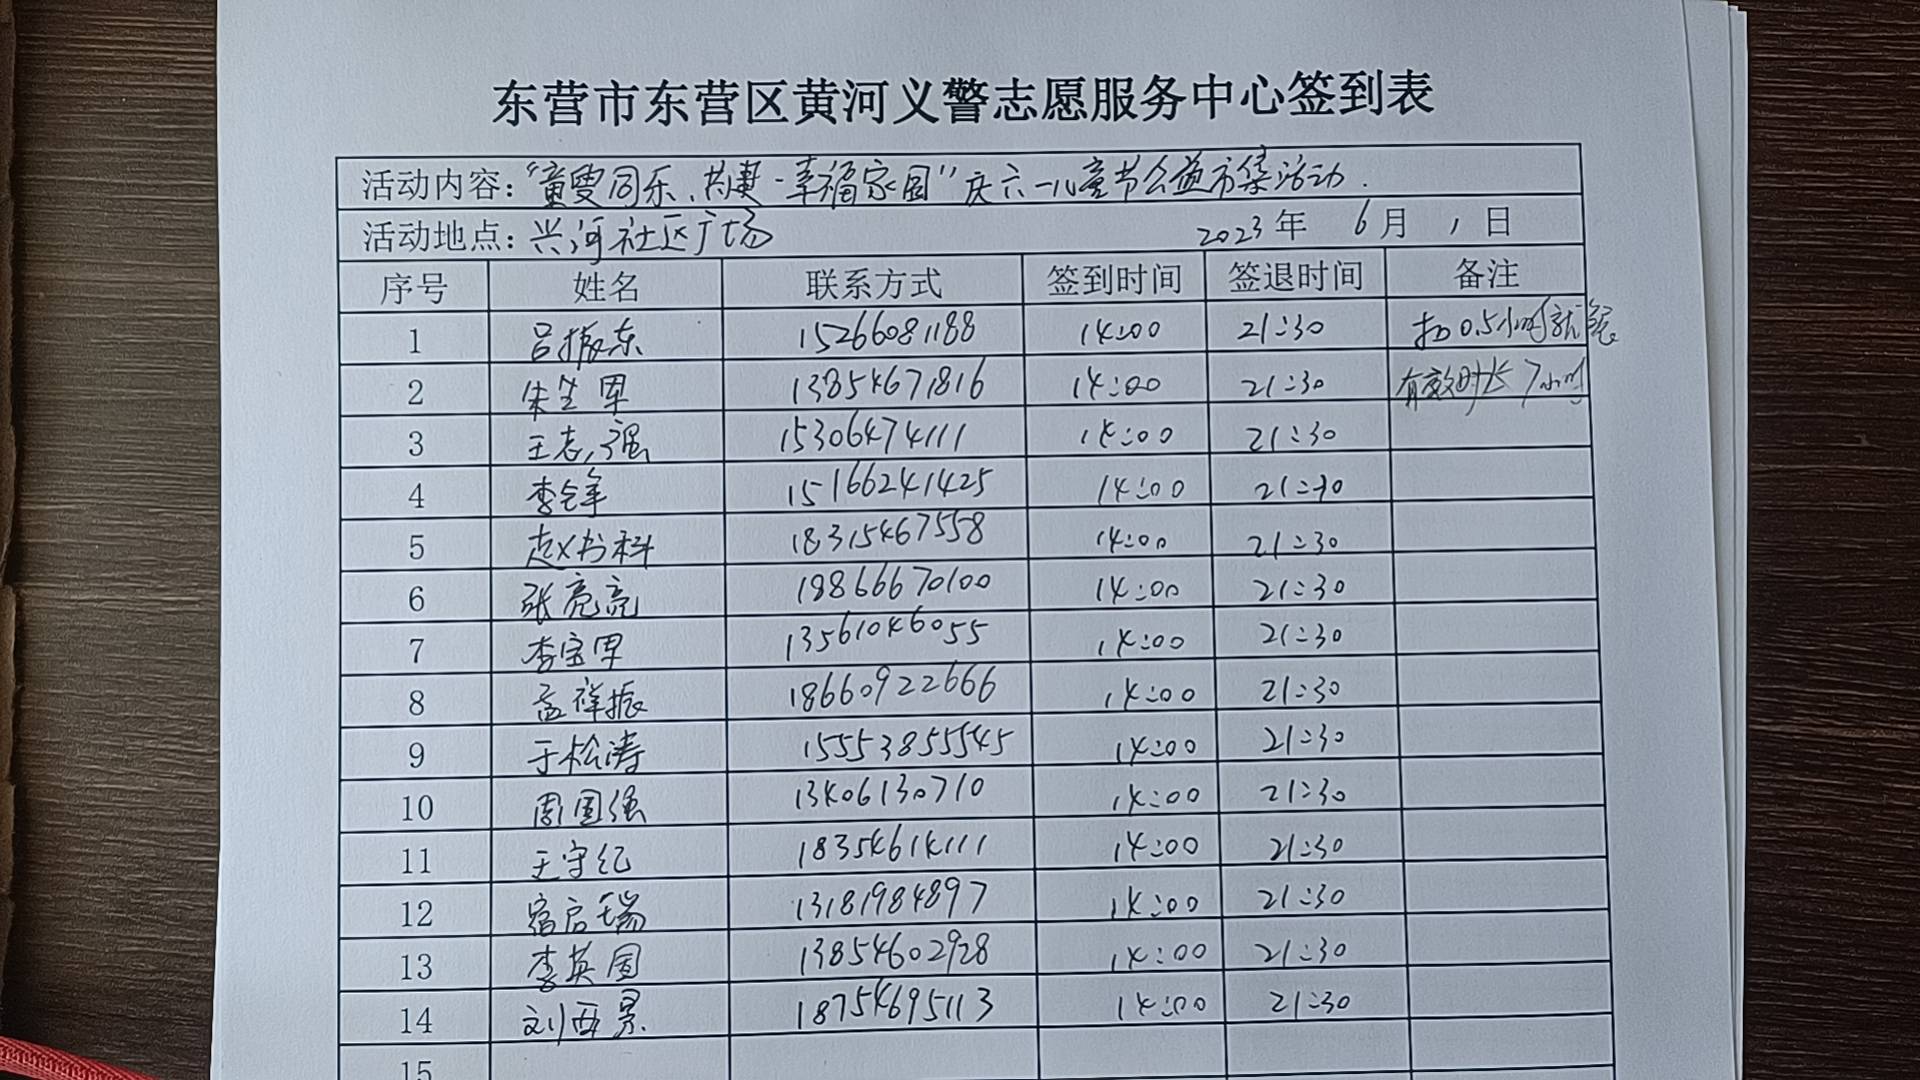 东营市东营区黄河义警志愿服务中心签到表
活动内容：“童叟同乐、共建·幸福家园”庆六一儿童节公益市集活动.
活动地点：兴河社区广场 2023年 6月 1日
序号 姓名 联系方式 签到时间 签退时间 备注
1 吕振东 15266081188 14:00 21:30 扣0.5小时就餐
2 朱生军 13854671816 14:00 21:30 有效时长7小时
3 王志强 15306474111 14:00 21:30
4 李全军 15166241425 14:00 21:30
5 赵书科 18315467558 14:00 21:30
6 张亮亮 18866670100 14:00 21:30
7 李宝军 13561046055 14:00 21:30
8 孟祥振 18660922666 14:00 21:30
9 于松涛 15553855545 14:00 21:30
10 周国强 13406130710 14:00 21:30
11 王守纪 18354614111 14:00 21:30
12 宿启瑞 13181984897 14:00 21:30
13 李英国 13854602928 14:00 21:30
14 刘西景 18754695113 14:00 21:30
15